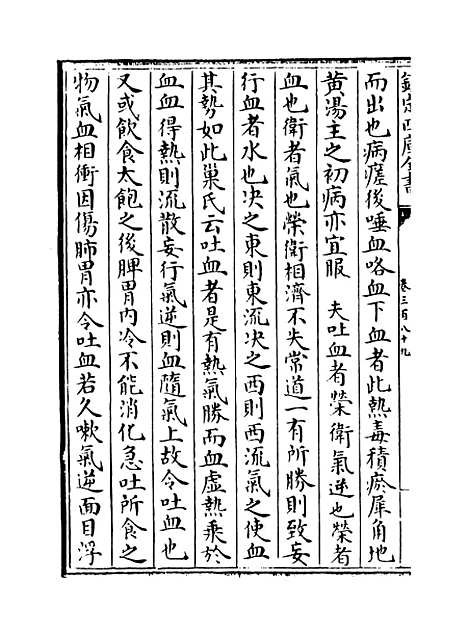 欽定四庫全書
卷三百八十九
而出也病瘥後唾血咯血下血者此熱毒積瘀犀角地
黄湯主之初病亦宜服　夫吐血者榮衛氣逆也榮者
血也衛者氣也榮衛相濟不失常道一有所勝則致妄
行血者水也决之東則東流决之西則西流氣之使血
其勢如此巢氏云吐血者是有熱氣勝而血虛熱乘於
血血得熱則流散妄行氣逆則血隨氣上故令吐血也
又或飲食太飽之後脾胃内冷不能消化急吐所食之
物氣血相衝因傷肺胃亦令吐血若久嗽氣逆面目浮